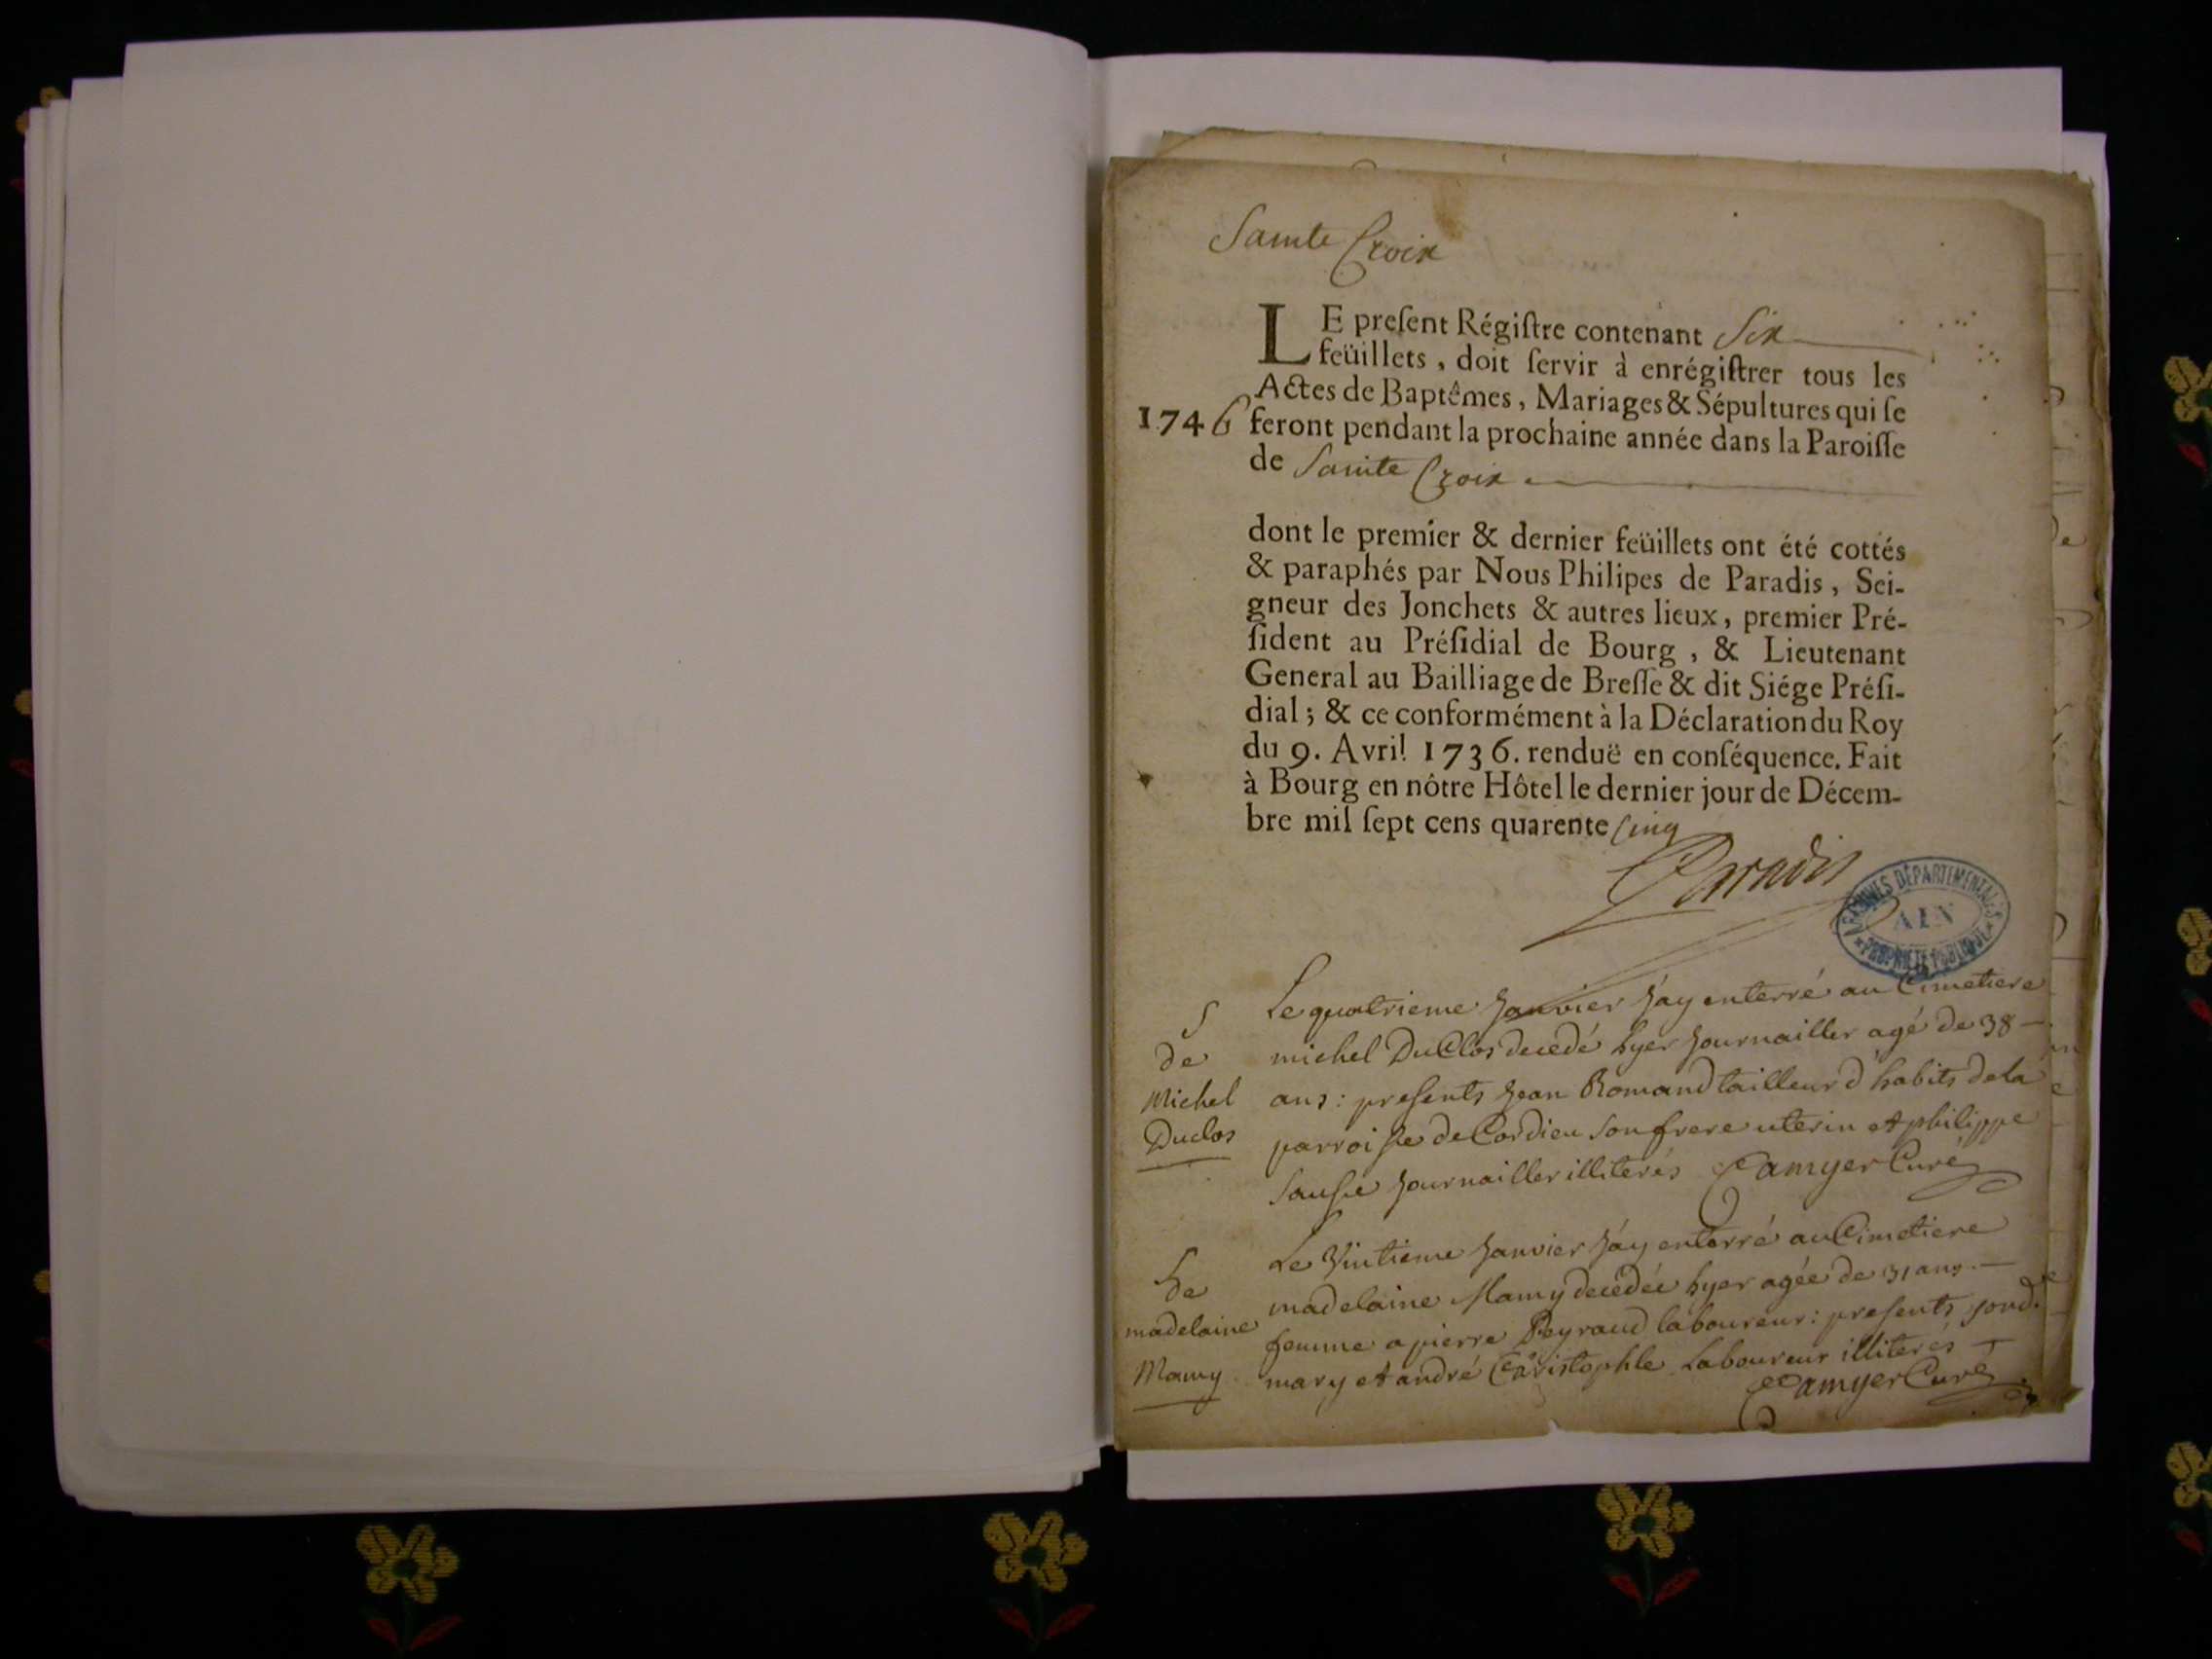 Sainte Croix
LE preſent Régiſtre contenant Six
feüillets, doit ſervir à enrégiſtrer tous les
Actes de Baptêmes, Mariages & Sépultures qui ſe
1746 feront pendant la prochaine année dans la Paroiſſe
de Sainte Croix
dont le premier & dernier feüillets ont été cottés
& paraphés par Nous Philipes de Paradis, Sei-
gneur des Jonchets & autres lieux, premier Pré-
ſident au Préſidial de Bourg, & Lieutenant
General au Bailliage de Breſſe & dit Siége Préſi-
dial; & ce conformément à la Déclaration du Roy
du 9. Avril 1736. renduë en conſéquence. Fait
à Bourg en nôtre Hôtel le dernier jour de Décem-
bre mil ſept cens quarente Cinq
Paradis
ARCHIVES DÉPARTEMENTALES
AIN
PROPRIÉTÉ PUBLIQUE
S
de
Michel
Duclos
Le quatrieme Janvier J'ay enterré au Cimetiere
michel DuClos decedé hyer Journailler agé de 38
ans: presents Jean Romand tailleur d'habits de la
parroisse de Cordieu son frere uterin et philippe
Journailler illiterés Camyer Curé
S de
madelaine
Mamy
Le Vintieme Janvier J'ay enterré au Cimetiere
madelaine Mamy decedée hyer agée de 31 ans
femme a pierre Peyraud laboureur: presents sond.
mary et andré Christophle Laboureur illiterés
Camyer Curé